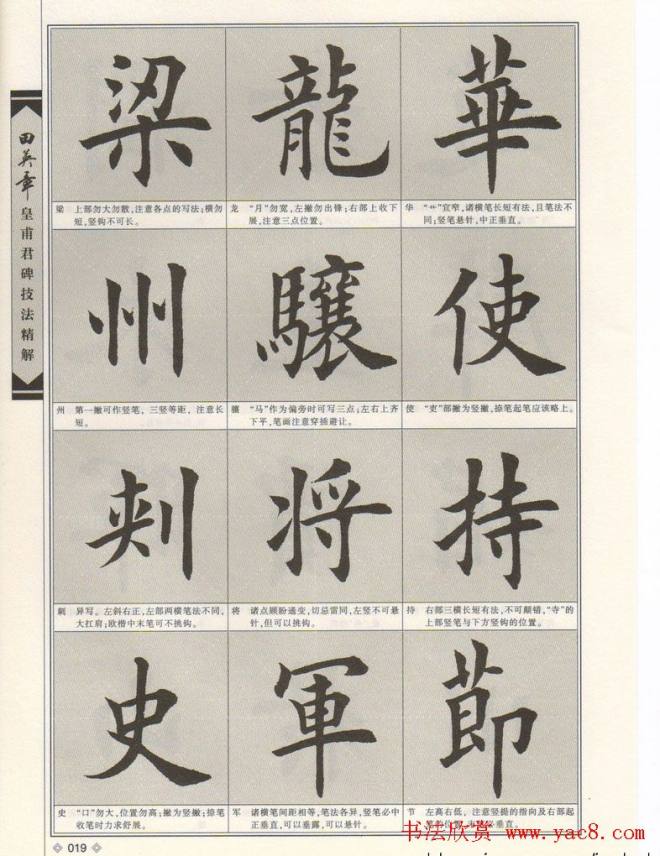 田英章 皇甫君碑技法精解
華
华 “艹”宜窄,诸横笔长短有法,且笔法不
同;竖笔悬针,中正垂直。
使
使 “吏”部撇为竖撇,捺笔起笔应该略上。
持
持 右部三横长短有法,不可颠错,“寺”的
上部竖笔与下方竖钩的位置。
節
节 左高右低,注意竖提的指向及右部起
必垂直。
龍
龙 “月”勿宽,左撇勿出锋;右部上收下
展,注意三点位置。
驤
骧 “马”作为偏旁时可写三点;左右上齐
下平,笔画注意穿插避让。
将
将 诸点顾盼通变,切忌雷同,左竖不可悬
针,但可以挑钩。
軍
军 诸横笔间距相等,笔法各异,竖笔必中
正垂直,可以垂露,可以悬针。
梁
梁 上部勿大勿散,注意各点的写法;横勿
短,竖钩不可长。
州
州 第一撇可作竖笔,三竖等距,注意长
短。
刺
刺 异写。左斜右正,左部两横笔法不同,
大扛肩;欧楷中末笔可不挑钩。
史
史 “口”勿大,位置勿高;撇为竖撇;捺笔
收笔时力求舒展。
019
书法欣赏 www.yac8.com